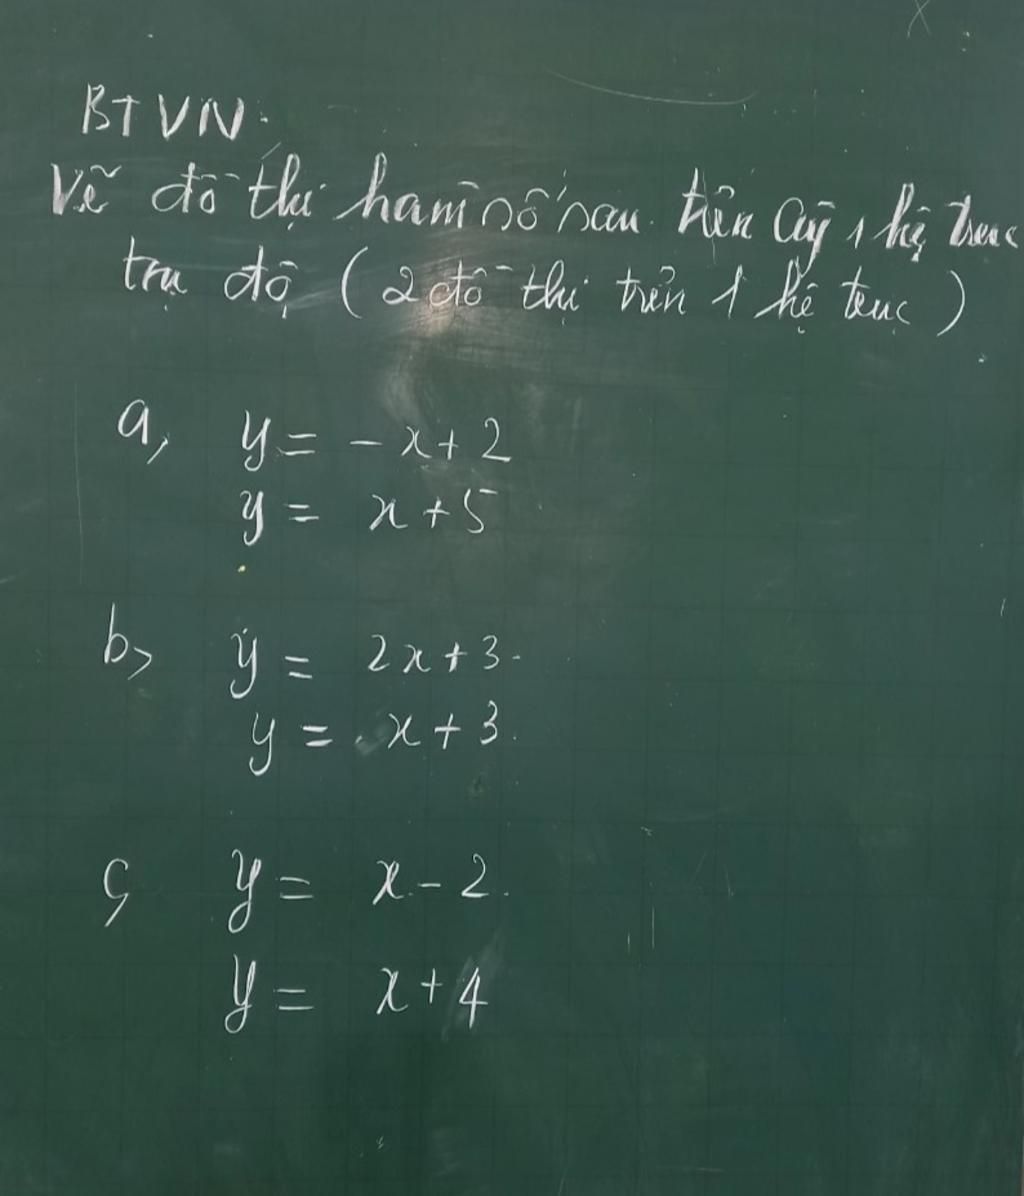 BTVN.
Vẽ đồ thị hàm số sau trên cùng 1 hệ trục
toạ độ (2 đồ thị trên 1 hệ trục)
a, y = -x + 2
y = x + 5
b, y = 2x + 3
y = x + 3
c, y = x - 2
y = x + 4